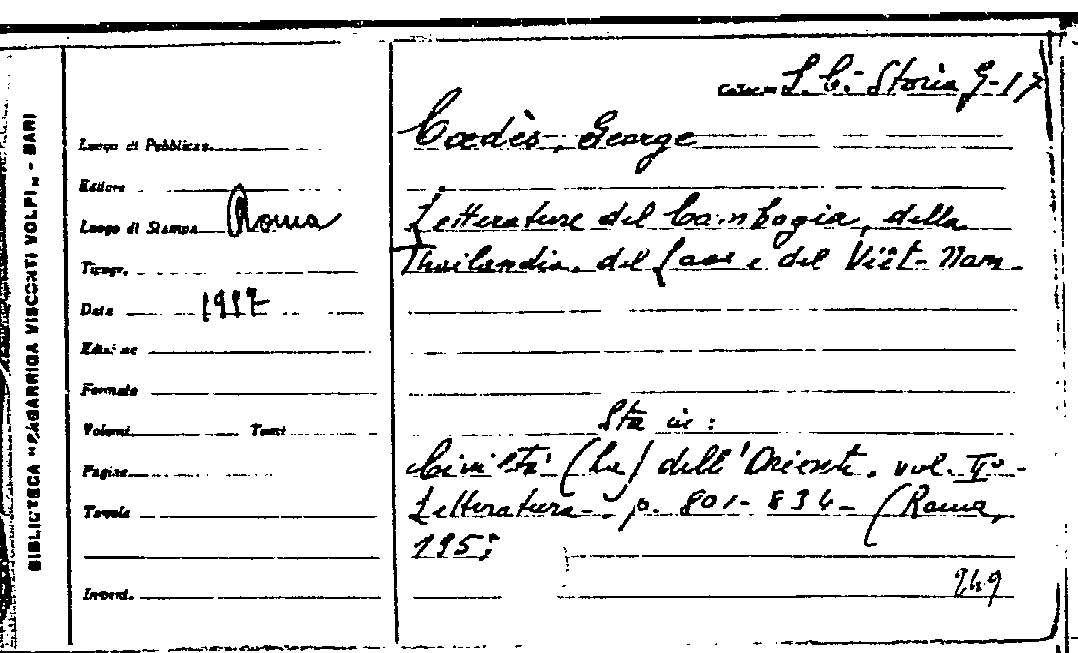 BIBLIOTECA "SAGARRIGA VISCONTI VOLPI" - BARI
Colloc. S. C. Storia G-17
Luogo di Pubblicaz.
Coedès, George
Editore
Luogo di Stampa Roma
Letterature del Cambogia, della
Tipogr.
Thailandia, del Laos e del Viêt-Nam.
Data 1957
Edizione
Formato
Volumi Tomi
Sta in:
Pagine
Civiltà (La) dell'Oriente. vol. IIº-
Tavole
Letteratura- p. 801-834- (Roma,
195
Invent.
249